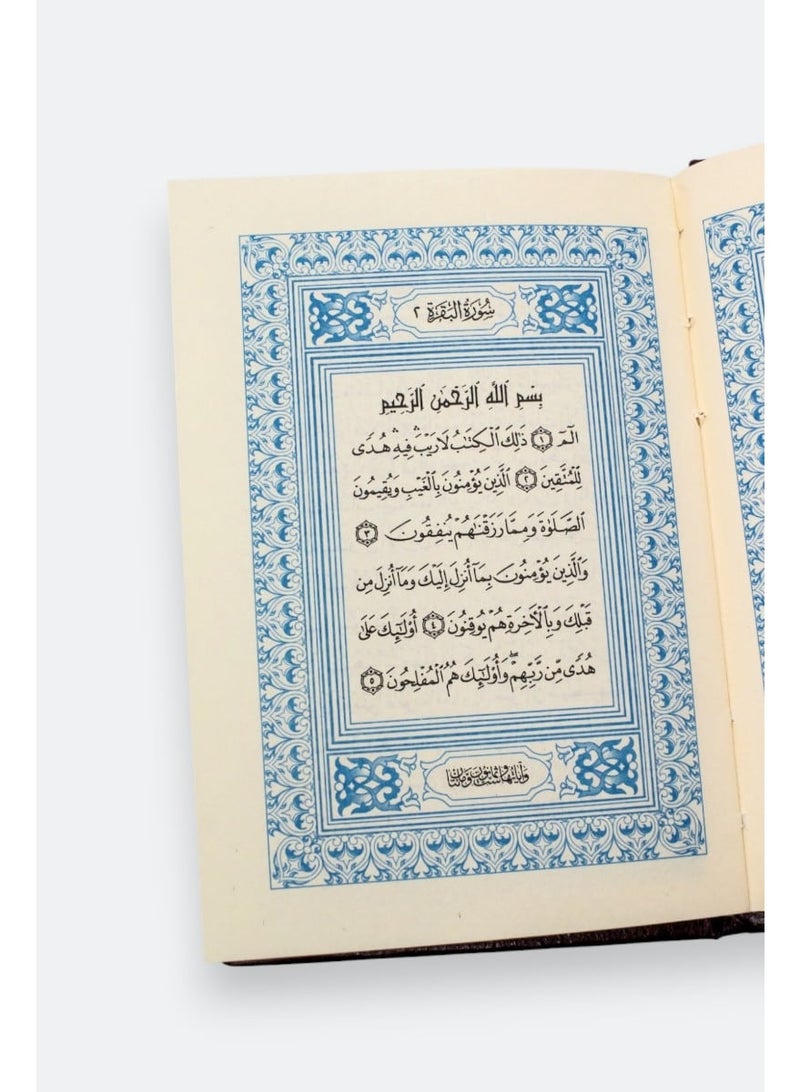 سُورَةُ البَقَرَةِ ٢
بِسْمِ اللَّهِ الرَّحْمَٰنِ الرَّحِيمِ
الٓمٓ ١ ذَٰلِكَ الْكِتَٰبُ لَا رَيْبَ ۛ فِيهِ ۛ هُدًى
لِلْمُتَّقِينَ ٢ الَّذِينَ يُؤْمِنُونَ بِالْغَيْبِ وَيُقِيمُونَ
الصَّلَوٰةَ وَمِمَّا رَزَقْنَٰهُمْ يُنْفِقُونَ ٣
وَالَّذِينَ يُؤْمِنُونَ بِمَا أُنْزِلَ إِلَيْكَ وَمَا أُنْزِلَ مِن
قَبْلِكَ وَبِالْأَخِرَةِ هُمْ يُوقِنُونَ ٤ أُوْلَٰٓئِكَ عَلَىٰ
هُدًى مِّن رَّبِّهِمْ ۖ وَأُوْلَٰٓئِكَ هُمُ الْمُفْلِحُونَ ٥
وَآيَاتُهَا سِتٌّ وَثَمَانُونَ وَمِائَتَانِ